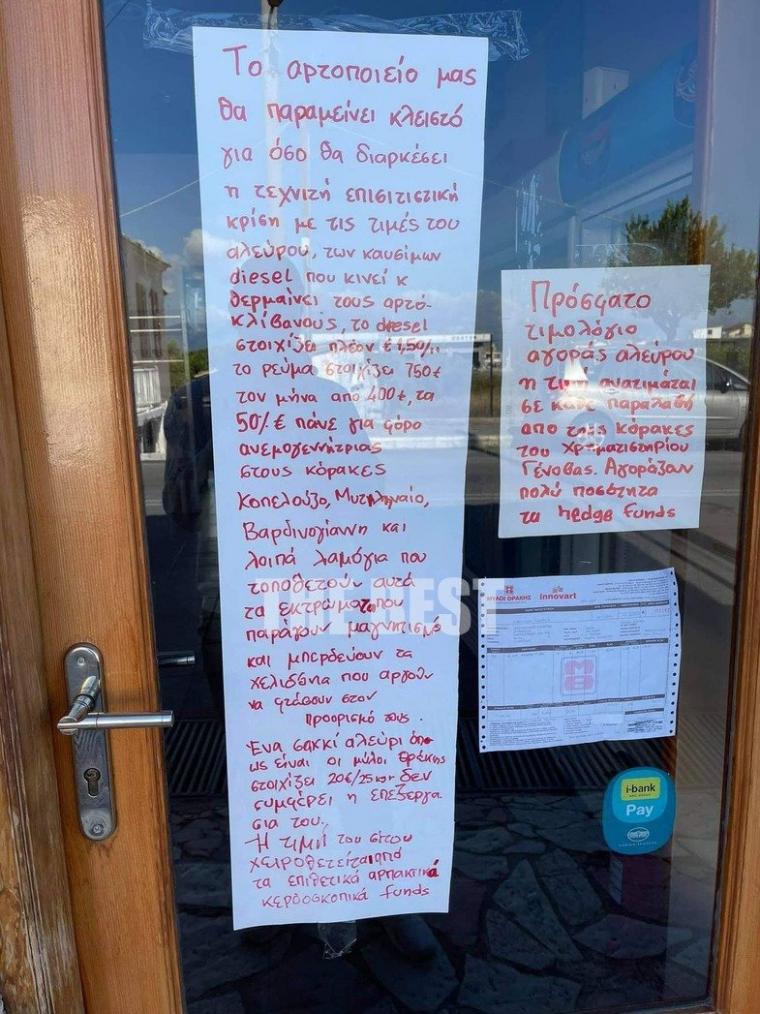 Το αρτοποιείο μας
θα παραμείνει κλειστό
για όσο θα διαρκέσει
η τεχνιτή επισιτιστική
κρίση με τις τιμές του
αλεύρου, των καυσίμων
diesel που κινεί κ
θερμαίνει τους αρτο-
κλίβανους, το diesel
στοιχίζει πλέον € 1,50/
το ρεύμα στοιχίζει 750€
τον μήνα απο 400€, τα
50/.€ πάνε για φόρο
ανεμογεννήτριας
στους κόρακες
Κοπελούζο, Μυτιληναίο,
Βαρδινογιάννη και
λοιπά λαμόγια που
τοποθετούν αυτά
τα εκτρώματα που
παράγουν μαγνητισμό
και μπερδεύουν τα
χελιδόνια που αργούν
να φτάσουν στον
προορισμό τους.
Ένα σακκί αλεύρι όπ
ως είναι οι μύλοι Θράκης
στοιχίζει 20€/25κιλ δεν
συμφέρει η επεξεργα
σια του..
Η τιμή του σίτου
χειροθετείται από
τα επιθετικά αρπακτικά
κερδοσκοπικά funds
Πρόσφατο
τιμολόγιο
αγοράς αλεύρου
η τιμή ανατιμάται
σε κάθε παραλαβή
απο τους κόρακες
του Χρηματιστηρίου
Γένοβας. Αγοράζουν
πολύ ποσότητα
τα hedge funds
THE BEST
ΜΥΛΟΙ ΘΡΑΚΗΣ innovart
i-bank
Pay